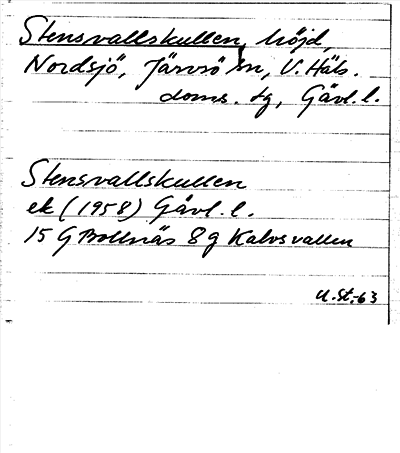 Stensvallskullen, höjd,
Nordsjö, Järvsö sn, V. Häls.
doms. tg, Gävl. l.
Stensvallskullen
ek (1958) Gävl. l.
15 G Bollnäs 8 g Kalvsvallen
U. St.-63